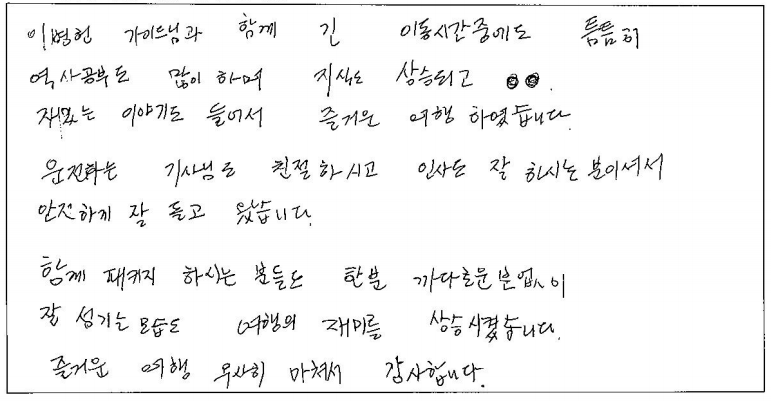 이병헌 가이드님과 함께 긴 이동시간중에도 틈틈히
역사공부도 많이 하며 지식도 상승되고
재밌는 이야기도 들어서 즐거운 여행 하였습니다.
운전하는 기사님도 친절하시고 인사도 잘 하시는 분이셔서
안전하게 잘 돌고 왔습니다.
함께 패키지 하시는 분들도 한분 까다로운분 없이
잘 섬기는 모습도 여행의 재미를 상승시켰습니다.
즐거운 여행 무사히 마쳐서 감사합니다.